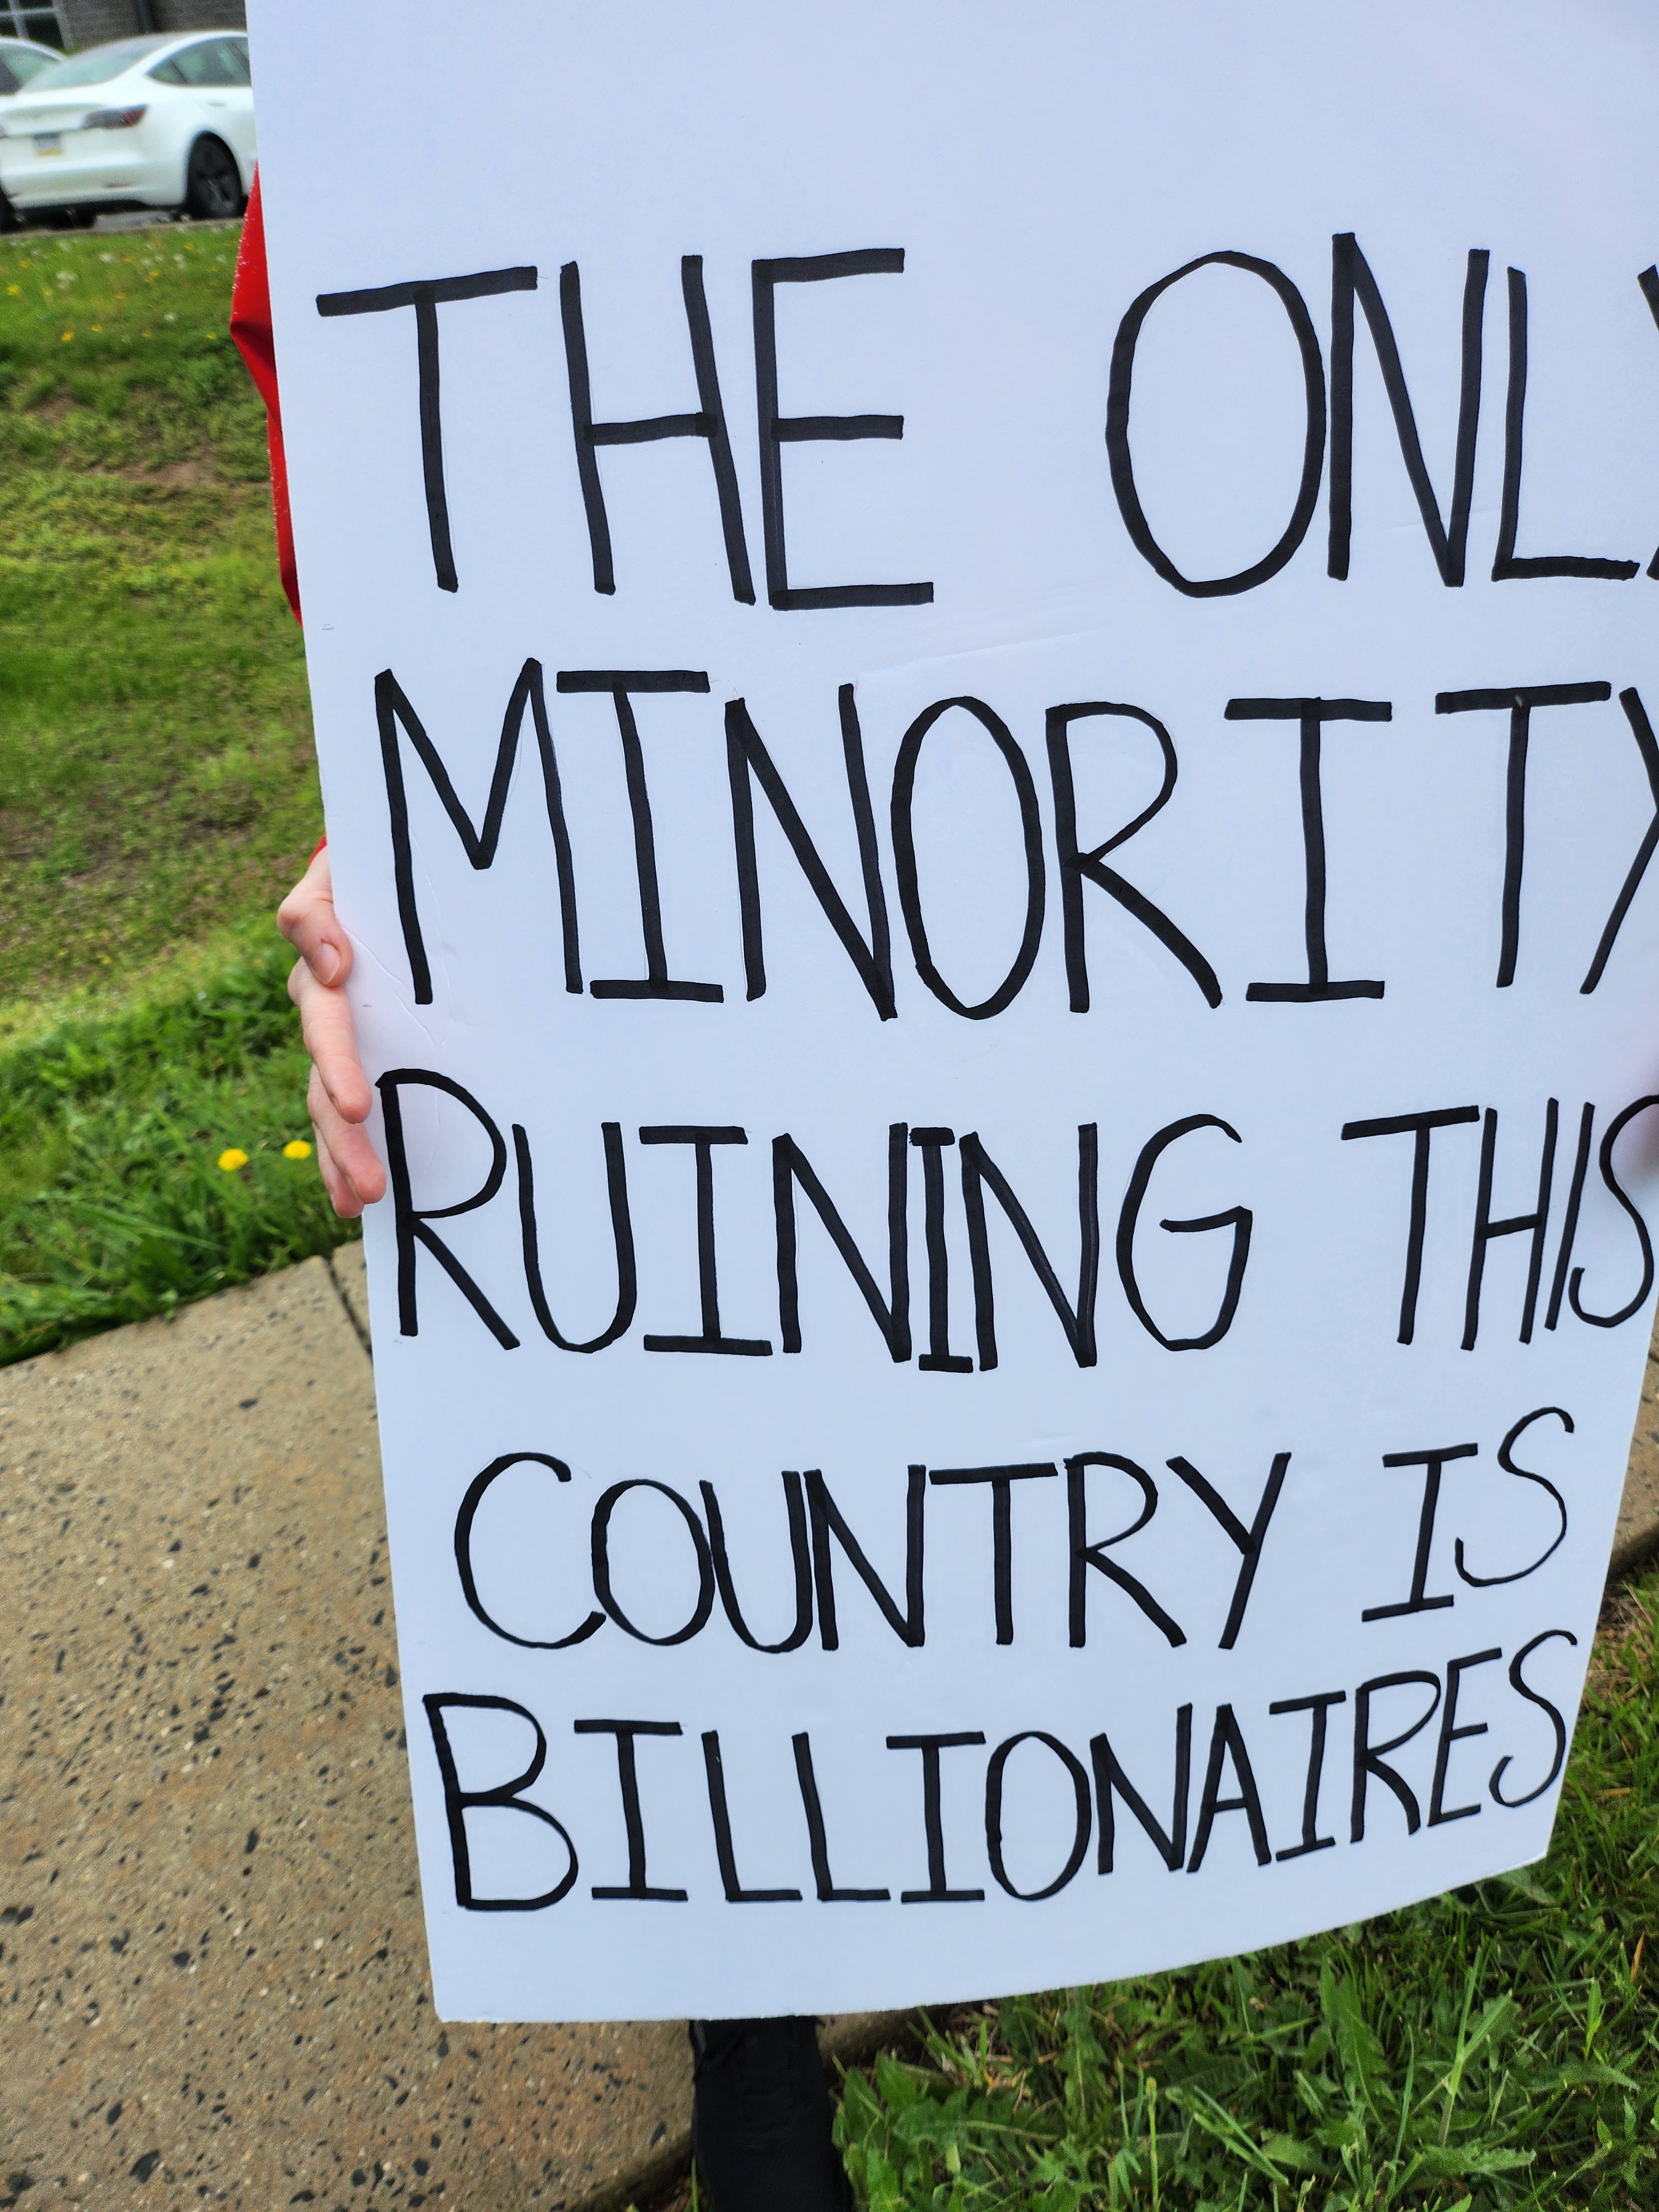 THE ONLY
MINORITY
RUINING THIS
COUNTRY IS
BILLIONAIRES